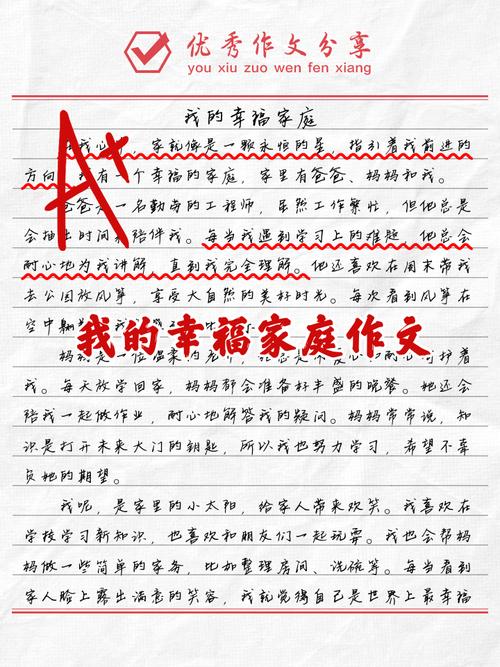 优秀作文分享
you xiu zuo wen fen xiang
我的幸福家庭
我心，家就像是一颗永恒的星，指引着我前进的
方向。我有一个幸福的家庭，家里有爸爸、妈妈和我。
爸爸一名勤劳的工程师，虽然工作繁忙，但他总是
会抽出时间来陪伴我。每当我遇到学习上的难题，他总会
耐心地为我讲解，直到我完全理解。他还喜欢在周末带我
去公园放风筝，享受大自然的美好时光。每次看到风筝在
空中
我的幸福家庭作文
妈一位温柔的护着
我。每天放学回家，妈妈都会准备好丰盛的晚餐。她还会
陪我一起做作业，耐心地解答我的疑问。妈妈常常说，知
识是打开未来大门的钥匙，所以我也努力学习，希望不辜
负她的期望。
我呢，是家里的小太阳，给家人带来欢笑。我喜欢在
学校学习新知识，也喜欢和朋友们一起玩耍。我也会帮妈
妈做一些简单的家务，比如整理房间、洗碗等。每当看到
家人脸上露出满意的笑容，我就觉得自己是世界上最幸福
A+